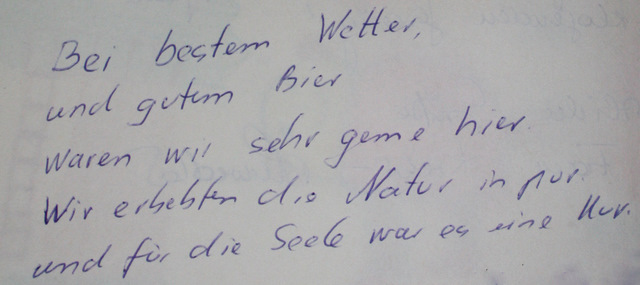 Bei bestem Wetter,
und gutem Bier
waren wir sehr gerne hier.
Wir erlebten die Natur in pur.
und für die Seele war es eine Kur.